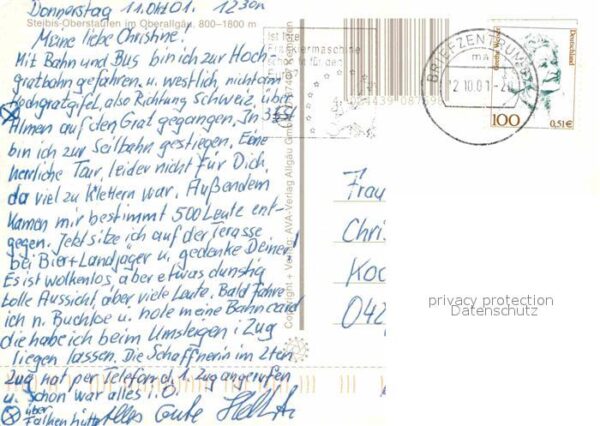 Donnerstag 11.Okt.01. 12³⁰h
Steibis-Oberstaufen im Oberallgäu, 800–1800 m
Meine liebe Christine.
Mit Bahn und Bus bin ich zur Hoch-
gratbahn gefahren. u. westlich, nicht am
Hochgratgipfel, also Richtung Schweiz, über
Almen auf den Grat gegangen. In
bin ich zur Seilbahn gestiegen. Eine
herrliche Tour, leider nicht für Dich,
da viel zu klettern war. Außerdem
kamen mir bestimmt 500 Leute ent-
gegen. Jetzt sitze ich auf der Terasse
bei Bier+Landjäger u. gedenke Deiner!
Es ist wolkenlos, aber etwas dunstig
tolle Aussicht, aber viele Leute. Bald fahre
ich n. Buchloe u. hole meine Bahncard
die habe ich beim Umsteigen i Zug
liegen lassen. Die Schaffnerin im 2ten
Zug hat per Telefon d. 1. Zug angerufen
u. schon war alles i.O.
über
Falkenhütte
Alles Gute
Copyright + Verlag: AVA-Verlag Allgäu GmbH 87407 Kempten
Ist Ihre
Frankiermaschine
schon fit für den
BRIEFZENTRUM 87
ma
12.10.01
Deutschland
100
0,51€
Frau
Chri
Koc
042
privacy protection
Datenschutz